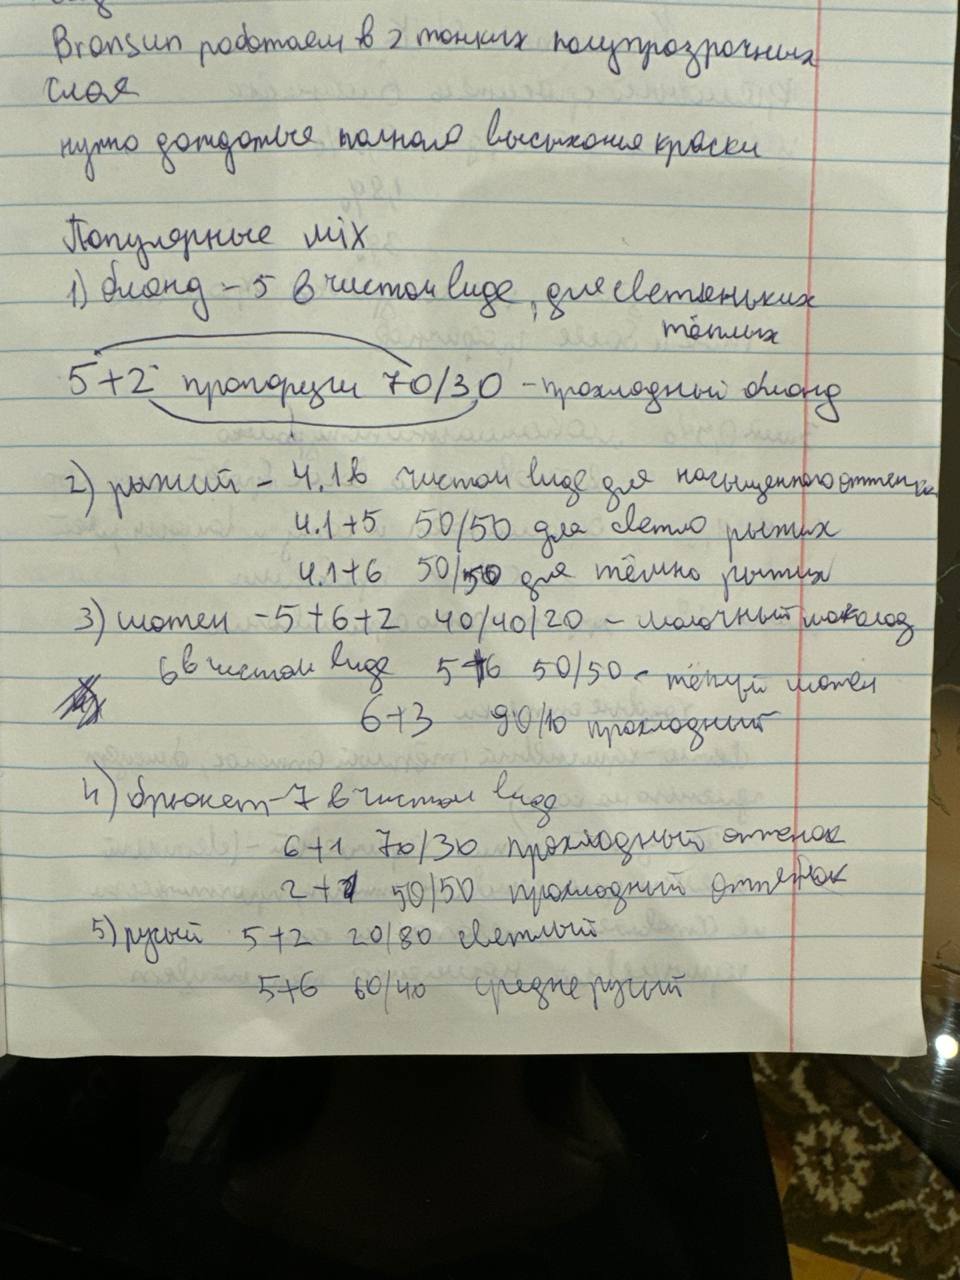 Bronsun работаем в 2 тонких полупрозрачных
слоя
нужно дождаться полного высыхания краски
Популярные mix
1) блонд - 5 в чистом виде, для светленьких
тёплых
5+2 пропорции 70/30 - прохладный блонд
2) рыжий - 4.1 в чистом виде для насыщенного оттенка
4.1+5 50/50 для светло рыжих
4.1+6 50/50 для тёмно рыжих
3) шатен - 5+6+2 40/40/20 - молочный шоколад
6 в чистом виде 5+6 50/50 - тёплый шатен
6+3 90/10 прохладный
4) брюнет - 7 в чистом виде
6+1 70/30 прохладный оттенок
2+1 50/50 прохладный оттенок
5) русый 5+2 20/80 светлый
5+6 60/40 средне русый